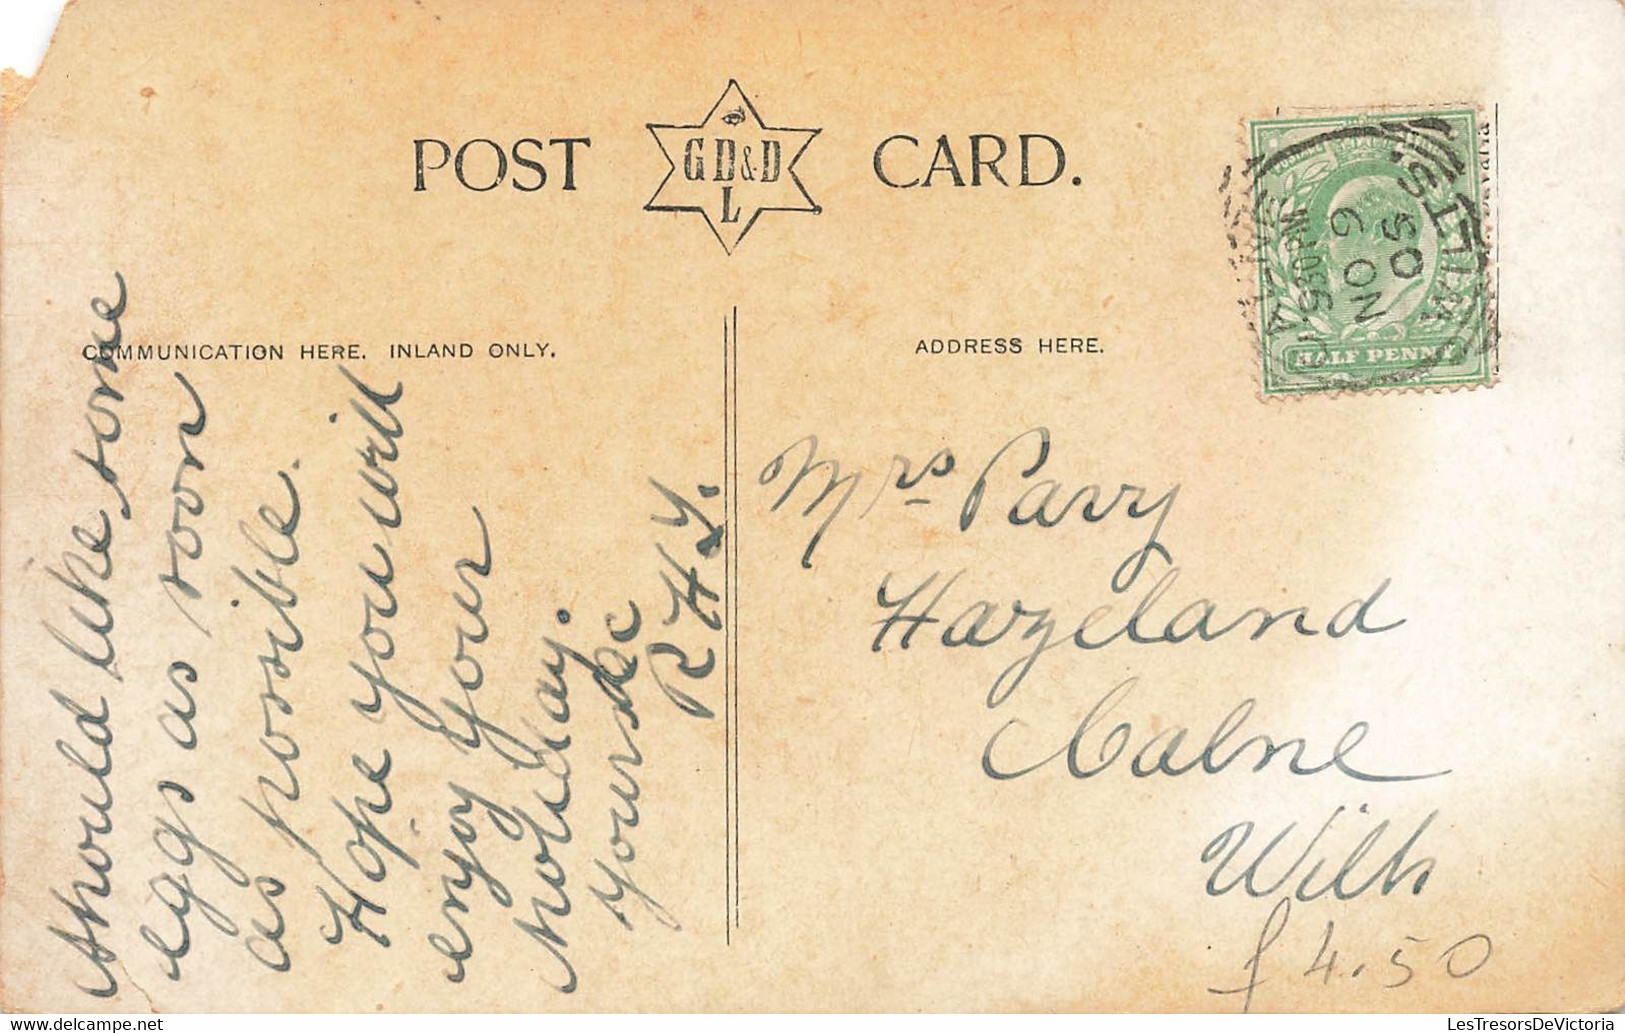 POST CARD.
GD&D
L
COMMUNICATION HERE. INLAND ONLY.
ADDRESS HERE.
HALF PENNY
WILTS.
NO 9
05
Should like some
eggs as soon
as possible.
Hope you will
enjoy your
holiday.
yours &c
R. H. Y.
Mrs Parry
Hazeland
Calne
Wilts
£4.50
LesTresorsDeVictoria.com